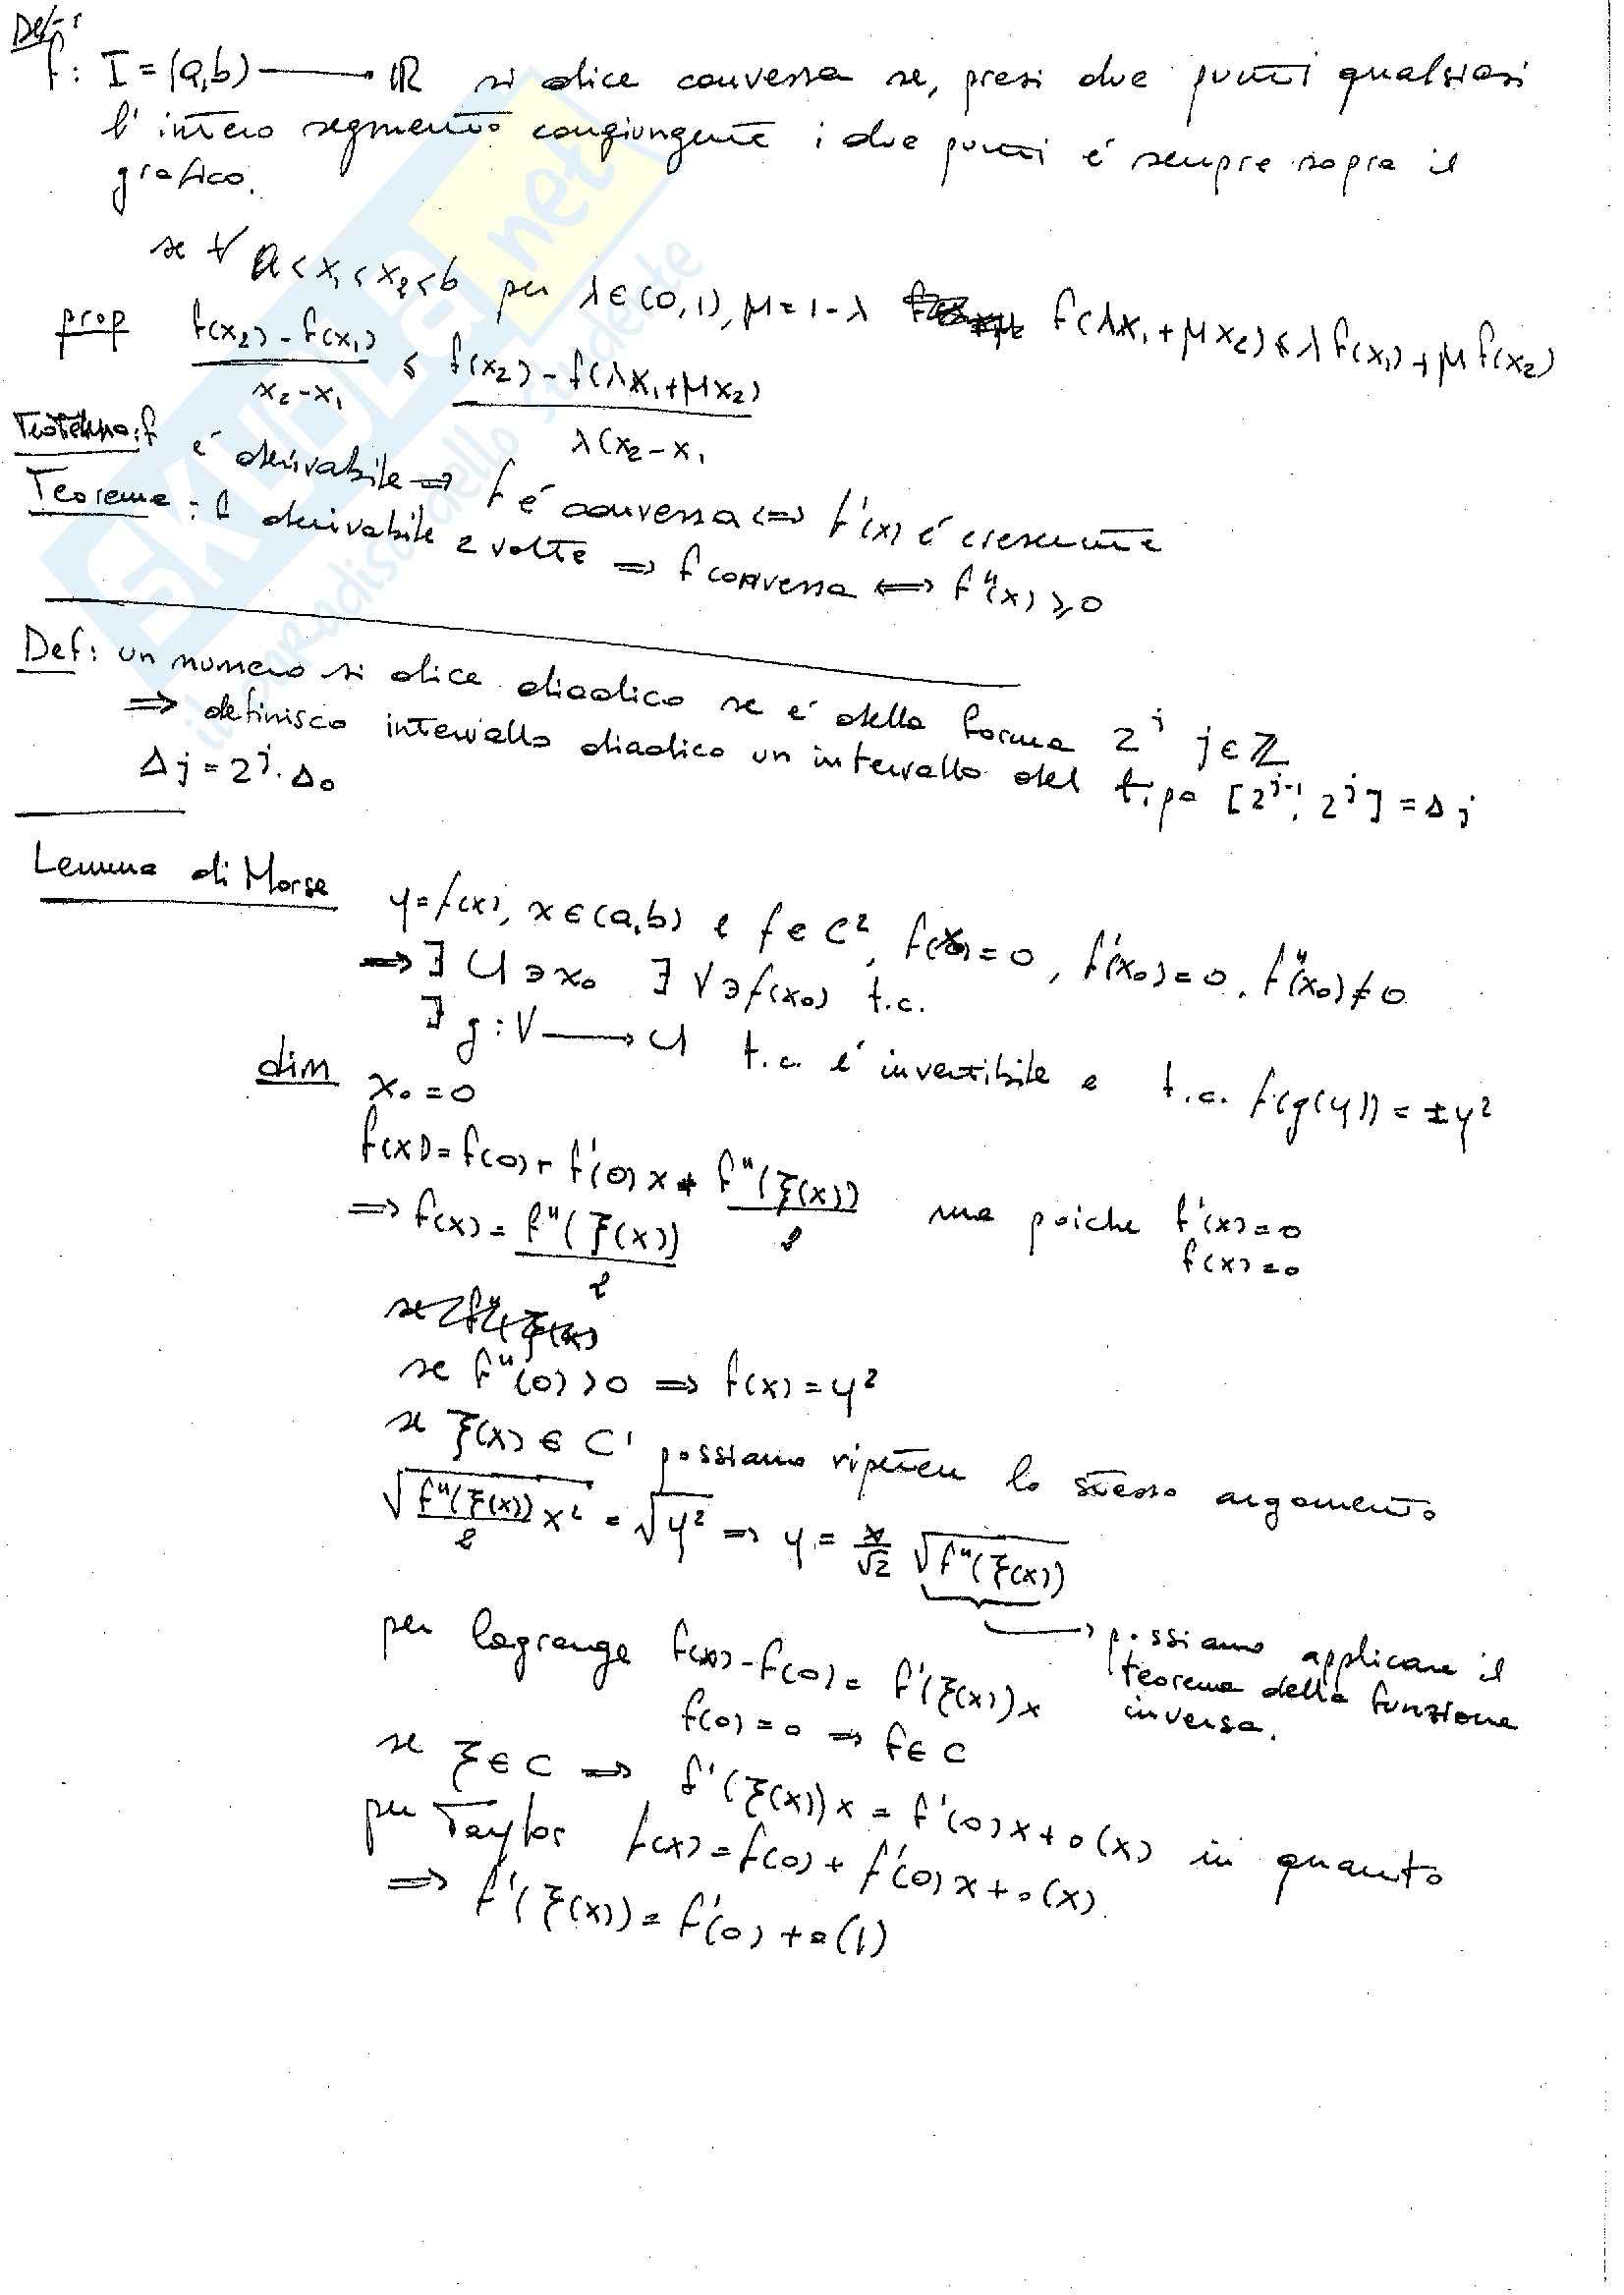 Def:
f: I = (a,b) → ℝ si dice convessa se, presi due punti qualsiasi
l'intero segmento congiungente i due punti é sempre sopra il
grafico.
se ∀ a<x₁<x₂<b per λ∈(0,1), μ=1-λ f(λx₁+μx₂) ≤ λf(x₁)+μf(x₂)
prop (f(x₂)-f(x₁))/(x₂-x₁) ≤ (f(x₂)-f(λx₁+μx₂))/(λ(x₂-x₁
Teorema: f é derivabile ⇒ f é convessa ⇔ f'(x) é crescente
Teorema: f derivabile 2 volte ⇒ f convessa ⇔ f''(x) ≥ 0
Def: un numero si dice diadico se é della forma 2^j j∈ℤ
⇒ definisco intervallo diadico un intervallo del tipo [2^{j-1}, 2^j] = Δj
Δj = 2^j · Δ₀
Lemma di Morse y=f(x), x∈(a,b) e f∈C², f(x₀)=0, f'(x₀)=0, f''(x₀)≠0
⇒ ∃ U∋x₀ ∃ V∋f(x₀) t.c.
∃ g: V → U t.c. é invertibile e t.c. f(g(y)) = ±y²
dim x₀=0
f(x) = f(0) + f'(0)x + f''(ξ(x))/2 ma poiche f'(x)=0
⇒ f(x) = f''(ξ(x))/2 f(x)=0
se f''(0)>0 ⇒ f(x)=y²
se ξ(x) ∈ C¹ possiamo ripetere lo stesso argomento
√(f''(ξ(x))/2 x²) = √(y²) ⇒ y = x/√2 √(f''(ξ(x)))
→ possiamo applicare il
teorema della funzione
inversa.
per Lagrange f(x)-f(0) = f'(ξ(x))x
f(0)=0 ⇒ f∈C
se ξ∈C ⇒ f'(ξ(x))x = f'(0)x+o(x) in quanto
per Taylor f(x)=f(0)+f'(0)x+o(x).
⇒ f'(ξ(x)) = f'(0)+o(1)
SKUOLA.net
il paradiso dello studente